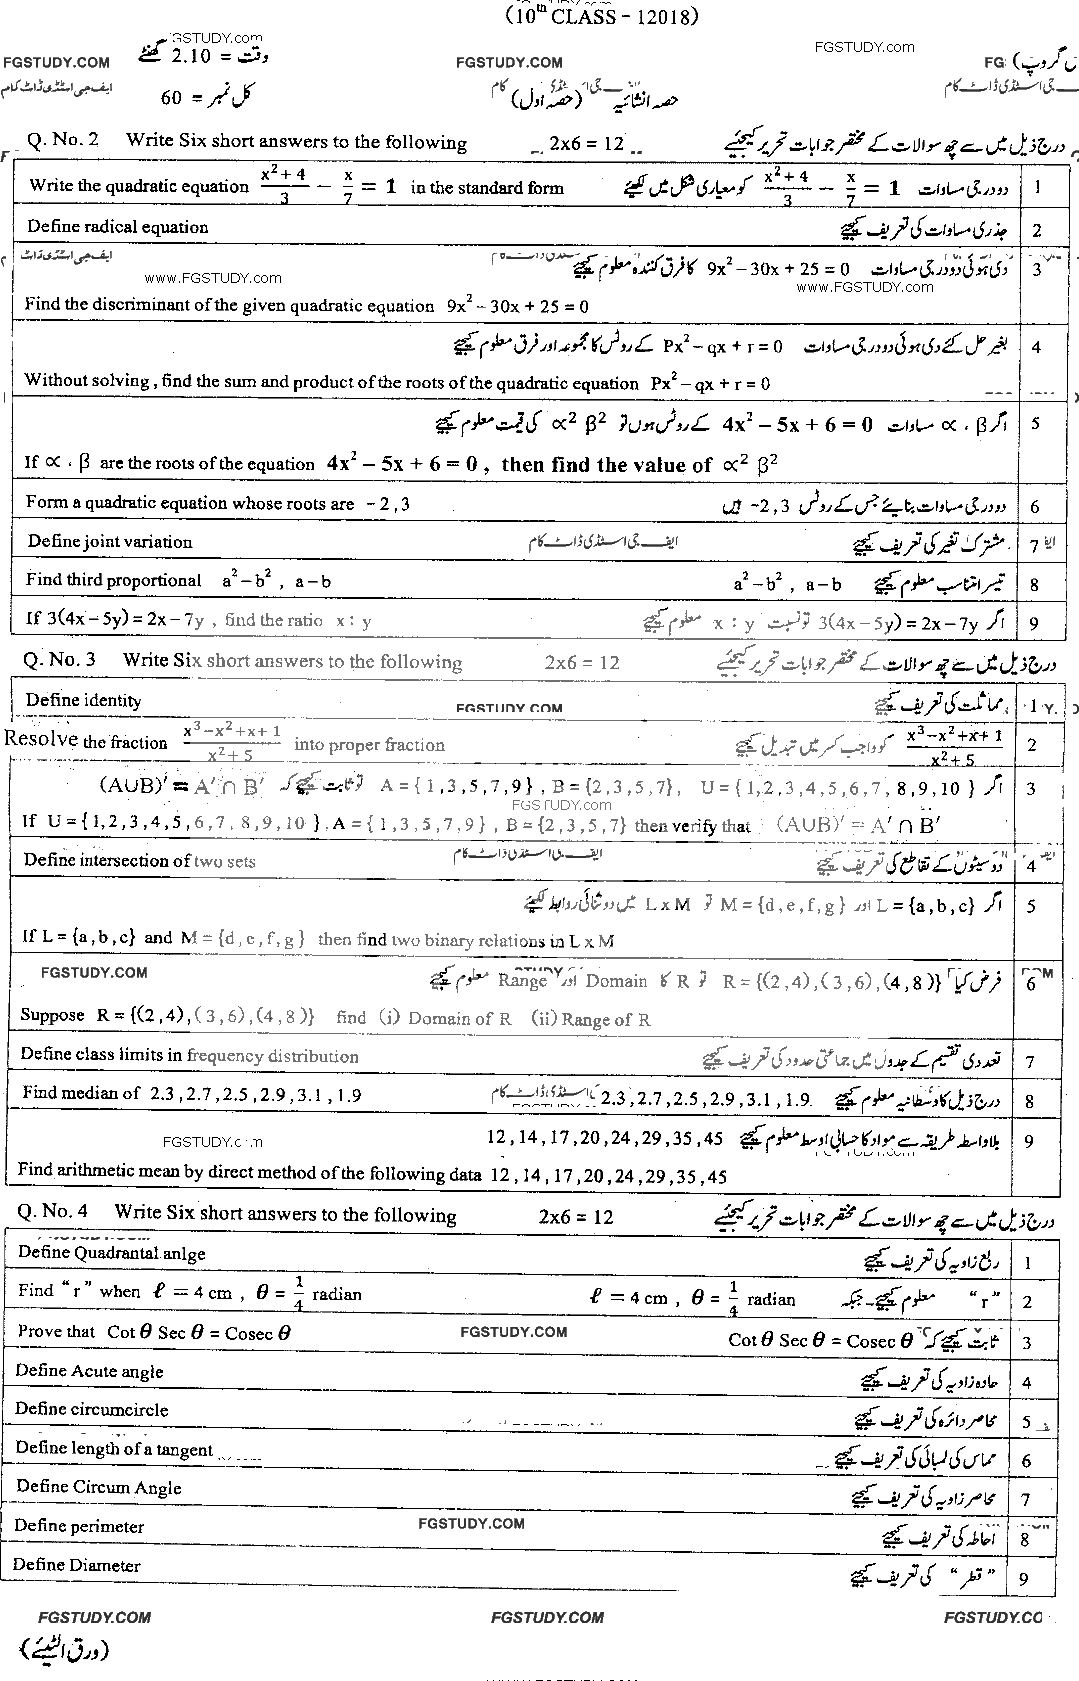 (10th CLASS - 12018)
GSTUDY.com
FGSTUDY.com
وقت = 2.10 گھنٹے
FGSTUDY.COM
FGSTUDY.COM
FG
ایف جی اسٹڈی ڈاٹ کام
کل نمبر = 60
حصہ انشائیہ (حصہ اول)
Q. No. 2 Write Six short answers to the following 2x6 = 12 درج ذیل میں سے چھ سوالات کے مختصر جوابات تحریر کیجئے
Write the quadratic equation (x²+4)/3 − x/7 = 1 in the standard form دو درجی مساوات (x²+4)/3 − x/7 = 1 کو معیاری شکل میں لکھئے 1
Define radical equation جذری مساوات کی تعریف کیجئے 2
ایف جی اسٹڈی ڈاٹ
دی ہوئی دو درجی مساوات 9x² − 30x + 25 = 0 کا فرق کنندہ معلوم کیجئے 3
www.FGSTUDY.com
www.FGSTUDY.com
Find the discriminant of the given quadratic equation 9x² − 30x + 25 = 0
بغیر حل کئے دی ہوئی دو درجی مساوات Px² − qx + r = 0 کے روٹس کا مجموعہ اور فرق معلوم کیجئے 4
Without solving, find the sum and product of the roots of the quadratic equation Px² − qx + r = 0
اگر ∝ , β مساوات 4x² − 5x + 6 = 0 کے روٹس ہوں تو ∝² β² کی قیمت معلوم کیجئے 5
If ∝ , β are the roots of the equation 4x² − 5x + 6 = 0 , then find the value of ∝² β²
Form a quadratic equation whose roots are −2 , 3 دو درجی مساوات بنائیے جس کے روٹس −2 , 3 ہیں 6
Define joint variation ایف جی اسٹڈی ڈاٹ کام مشترک تغیر کی تعریف کیجئے 7
Find third proportional a² − b² , a − b تیسرا متناسب معلوم کیجئے a² − b² , a − b 8
If 3(4x − 5y) = 2x − 7y , find the ratio x : y اگر 3(4x − 5y) = 2x − 7y تو نسبت x : y معلوم کیجئے 9
Q. No. 3 Write Six short answers to the following 2x6 = 12 درج ذیل میں سے چھ سوالات کے مختصر جوابات تحریر کیجئے
Define identity FGSTUDY.COM مماثلت کی تعریف کیجئے 1
Resolve the fraction (x³−x²+x+1)/(x²+5) into proper fraction (x³−x²+x+1)/(x²+5) کو واجب کسر میں تبدیل کیجئے 2
اگر U = {1,2,3,4,5,6,7,8,9,10} , B = {2,3,5,7} , A = {1,3,5,7,9} تو ثابت کیجئے کہ (AUB)′ = A′ ∩ B′ 3
FGSTUDY.com
If U = {1,2,3,4,5,6,7,8,9,10} , A = {1,3,5,7,9} , B = {2,3,5,7} then verify that (AUB)′ = A′ ∩ B′
Define intersection of two sets ایف جی اسٹڈی ڈاٹ کام دو سیٹوں کے تقاطع کی تعریف کیجئے 4
اگر L = {a,b,c} اور M = {d,e,f,g} تو L x M میں دو ثنائی روابط لکھئے 5
If L = {a,b,c} and M = {d,e,f,g} then find two binary relations in L x M
FGSTUDY.COM
فرض کیا R = {(2,4),(3,6),(4,8)} تو R کا Domain اور Range معلوم کیجئے 6
Suppose R = {(2,4),(3,6),(4,8)} find (i) Domain of R (ii) Range of R
Define class limits in frequency distribution تعددی تقسیم کے جدول میں جماعتی حدود کی تعریف کیجئے 7
Find median of 2.3 , 2.7 , 2.5 , 2.9 , 3.1 , 1.9 درج ذیل کا وسطانیہ معلوم کیجئے 2.3 , 2.7 , 2.5 , 2.9 , 3.1 , 1.9. 8
بلاواسطہ طریقہ سے مواد کا حسابی اوسط معلوم کیجئے 12 , 14 , 17 , 20 , 24 , 29 , 35 , 45 9
Find arithmetic mean by direct method of the following data 12 , 14 , 17 , 20 , 24 , 29 , 35 , 45
Q. No. 4 Write Six short answers to the following 2x6 = 12 درج ذیل میں سے چھ سوالات کے مختصر جوابات تحریر کیجئے
Define Quadrantal anlge ربع زاویہ کی تعریف کیجئے 1
Find "r" when ℓ = 4 cm , θ = 1/4 radian ℓ = 4 cm , θ = 1/4 radian معلوم کیجئے۔ جبکہ "r" 2
Prove that Cot θ Sec θ = Cosec θ FGSTUDY.COM ثابت کیجئے کہ Cot θ Sec θ = Cosec θ 3
Define Acute angle حادہ زاویہ کی تعریف کیجئے 4
Define circumcircle محاصر دائرہ کی تعریف کیجئے 5
Define length of a tangent مماس کی لمبائی کی تعریف کیجئے 6
Define Circum Angle محاصر زاویہ کی تعریف کیجئے 7
Define perimeter FGSTUDY.COM احاطہ کی تعریف کیجئے 8
Define Diameter "قطر" کی تعریف کیجئے 9
FGSTUDY.COM FGSTUDY.COM FGSTUDY.CO
(ورق الٹیئے)